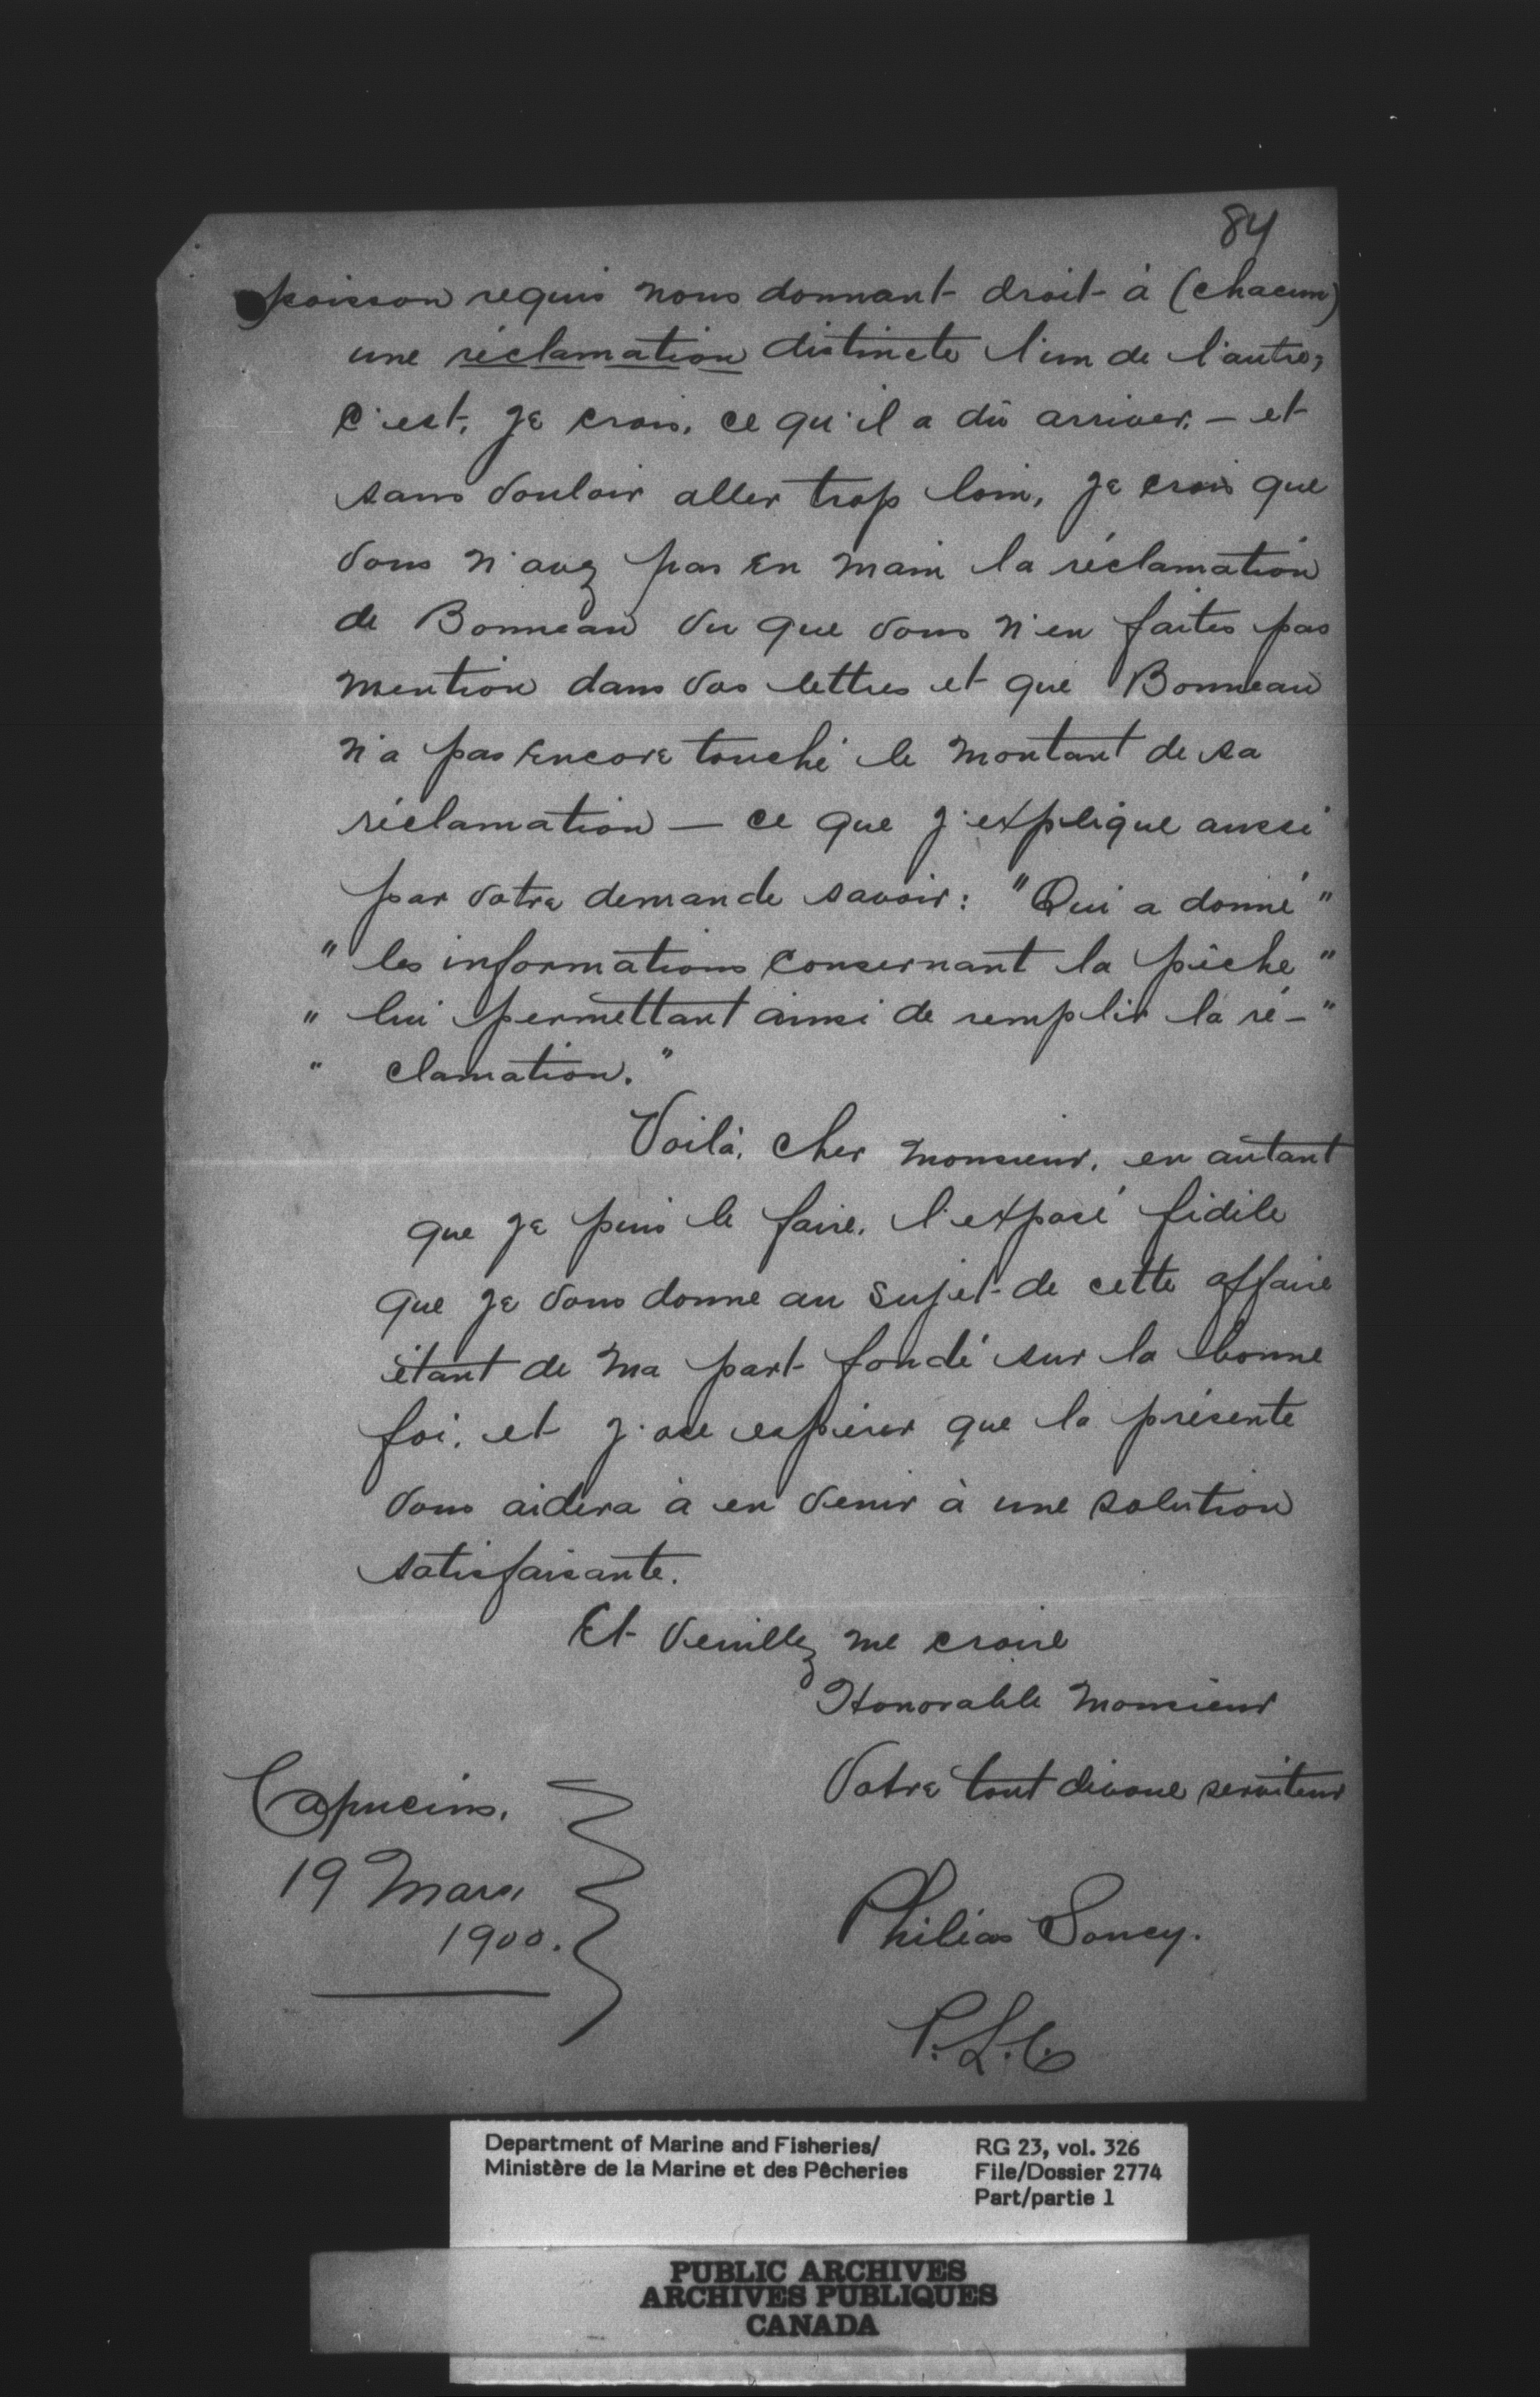 84
poisson requis nous donnant droit à (chacun)
une réclamation distincte l'un de l'autre,
c'est, je crois, ce qu'il a dû arriver, — et
sans vouloir aller trop loin, je crois que
vous n'avez pas en main la réclamation
de Bonneau vu que vous n'en faites pas
mention dans vos lettres et que Bonneau
n'a pas encore touché le montant de sa
réclamation — ce que j'explique aussi
par votre demande savoir : "Qui a donné"
"les informations consernant la pêche"
"lui permettant ainsi de remplir la ré-"
"clamation."
Voilà, cher monsieur, en autant
que je puis le faire, l'exposé fidèle
que je vous donne au sujet de cette affaire
étant de ma part fondé sur la bonne
foi, et j'ose espérer que la présente
vous aidera à en venir à une solution
satisfaisante.
Et veuillez me croire
Honorable Monsieur
Votre tout dévoué serviteur
Capucins,
19 Mars,
1900.
Philias
P.L.C.
Department of Marine and Fisheries/
Ministère de la Marine et des Pêcheries
RG 23, vol. 326
File/Dossier 2774
Part/partie 1
PUBLIC ARCHIVES
ARCHIVES PUBLIQUES
CANADA